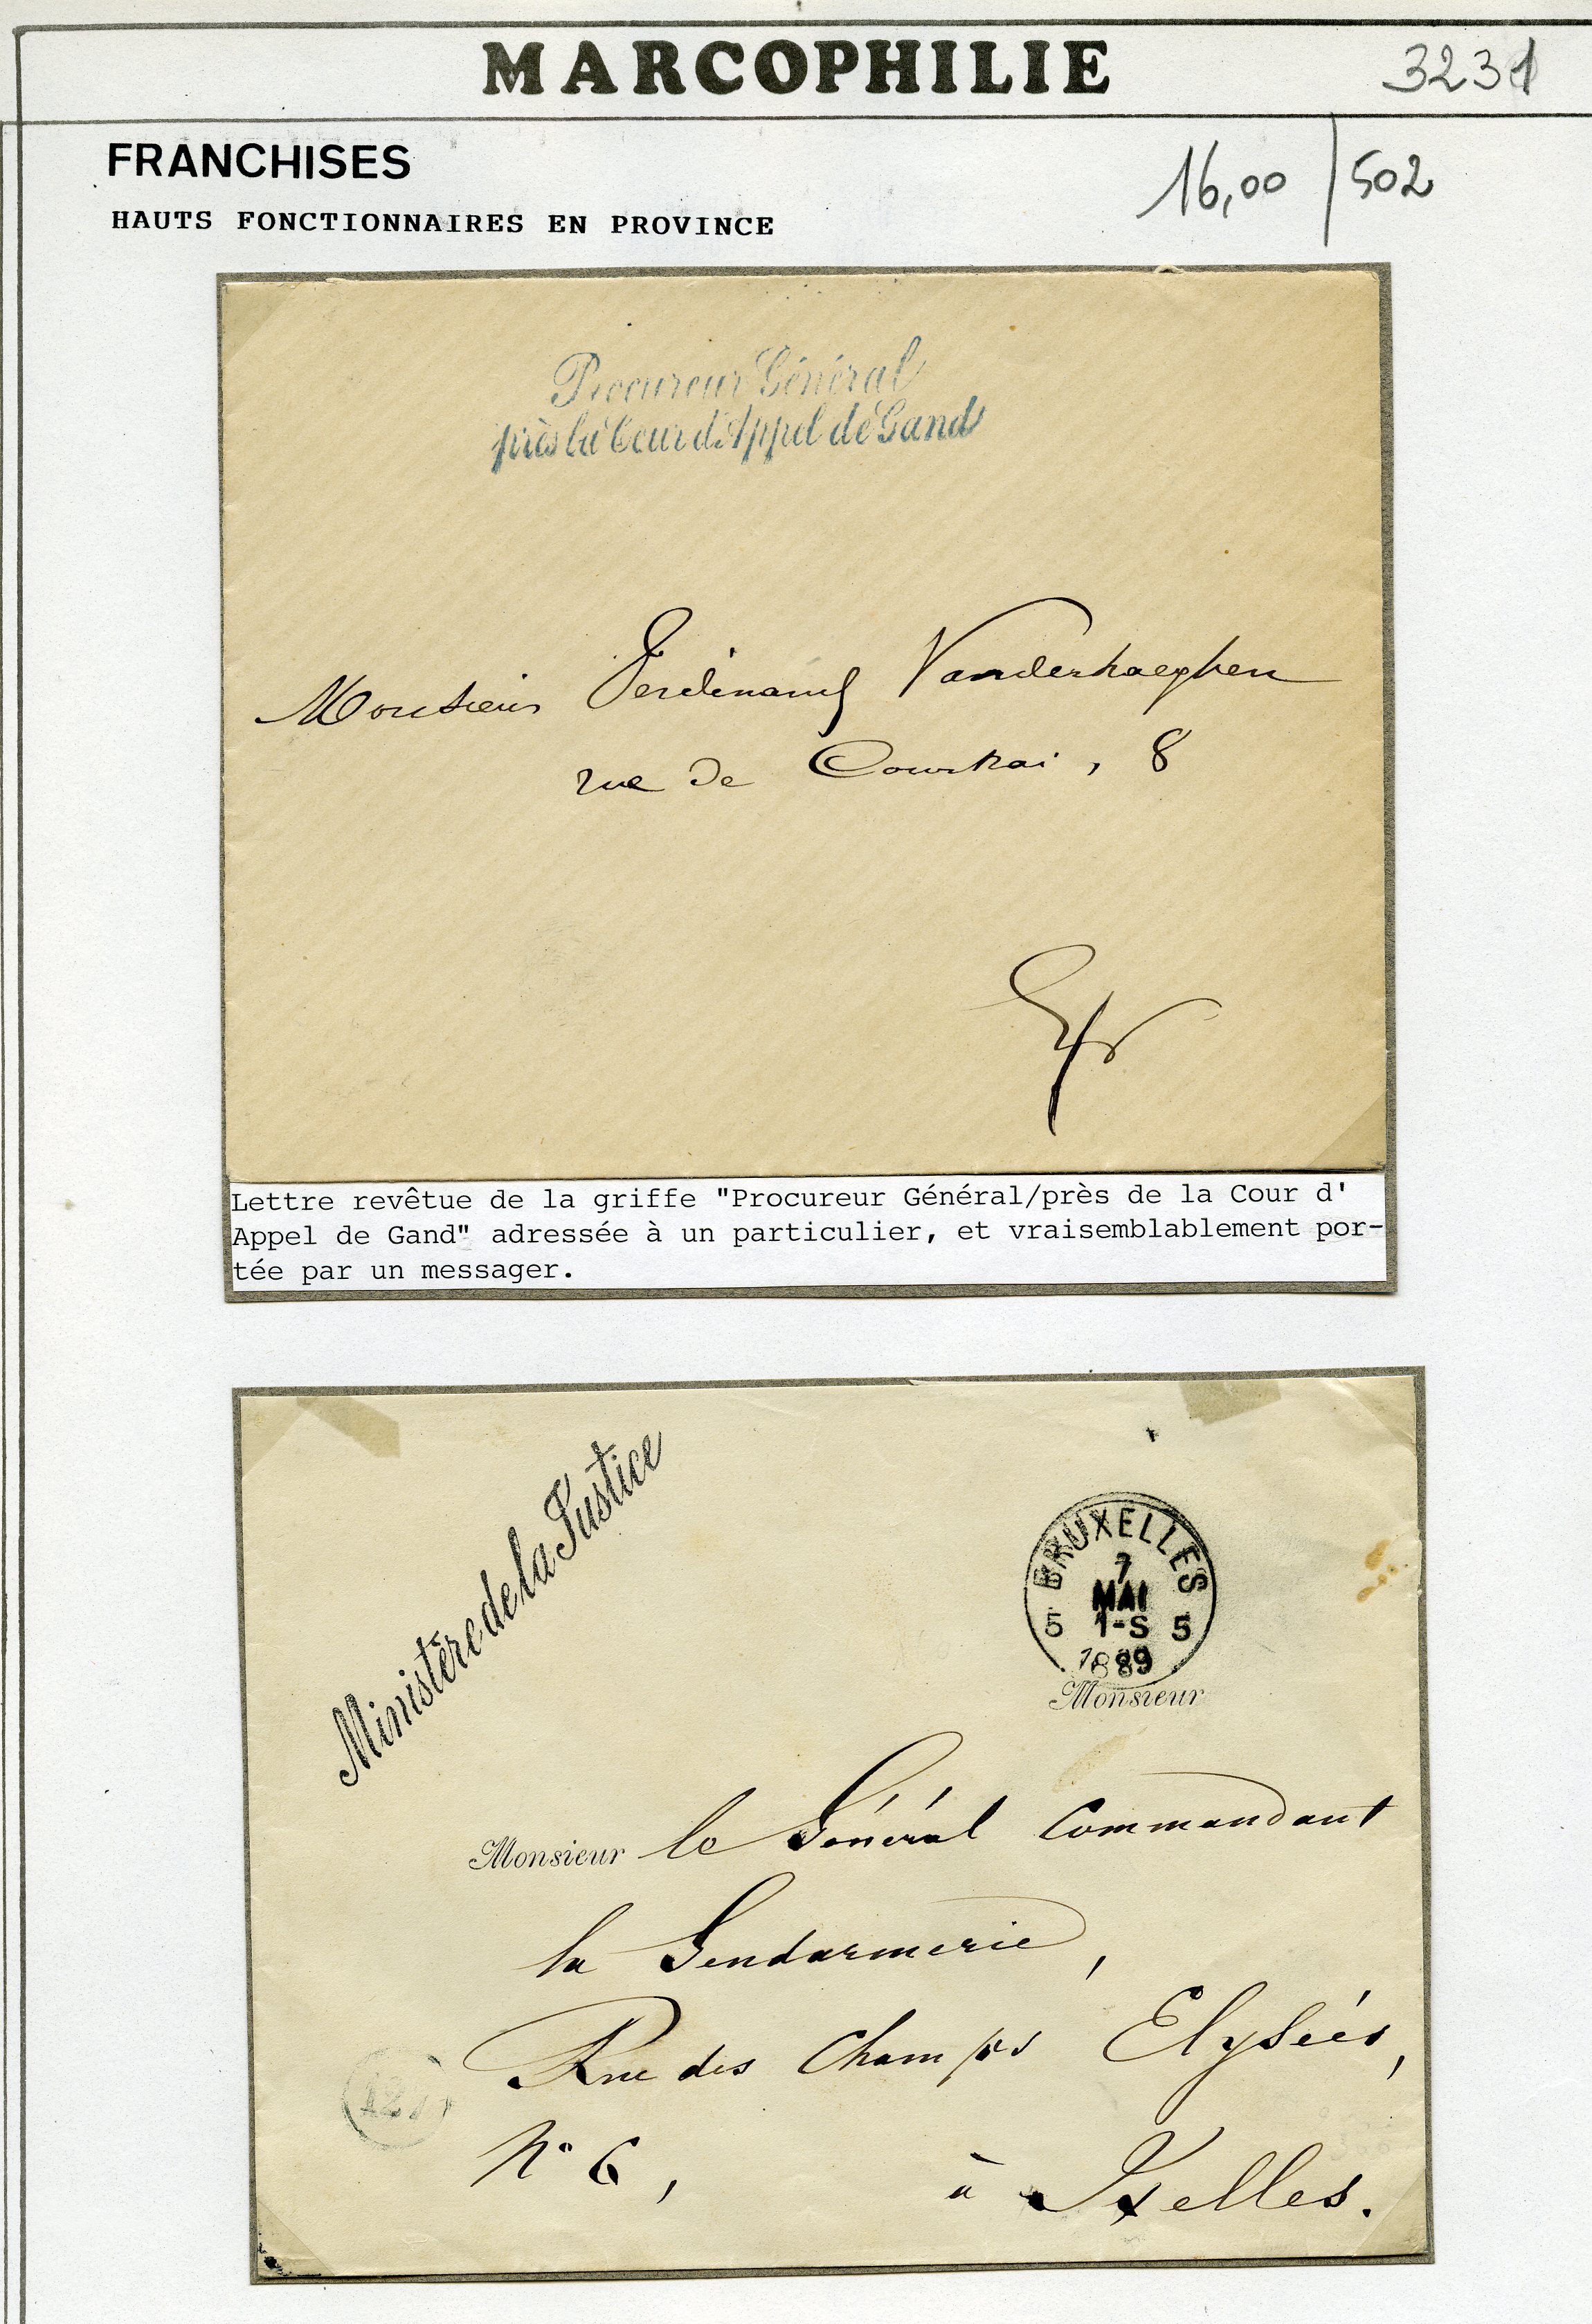 MARCOPHILIE
3231
FRANCHISES
16,00 / 502
HAUTS FONCTIONNAIRES EN PROVINCE
Procureur Général
près la Cour d'Appel de Gand
Monsieur Ferdinand Vanderhaeghen
rue de Courtrai, 8
Lettre revêtue de la griffe "Procureur Général/près de la Cour d'
Appel de Gand" adressée à un particulier, et vraisemblablement por-
tée par un messager.
Ministère de la Justice
BRUXELLES
7
MAI
5 1-S 5
1889
Monsieur
Monsieur le Général Commandant
la Gendarmerie,
Rue des Champs Elysées,
N° 6, à Ixelles.